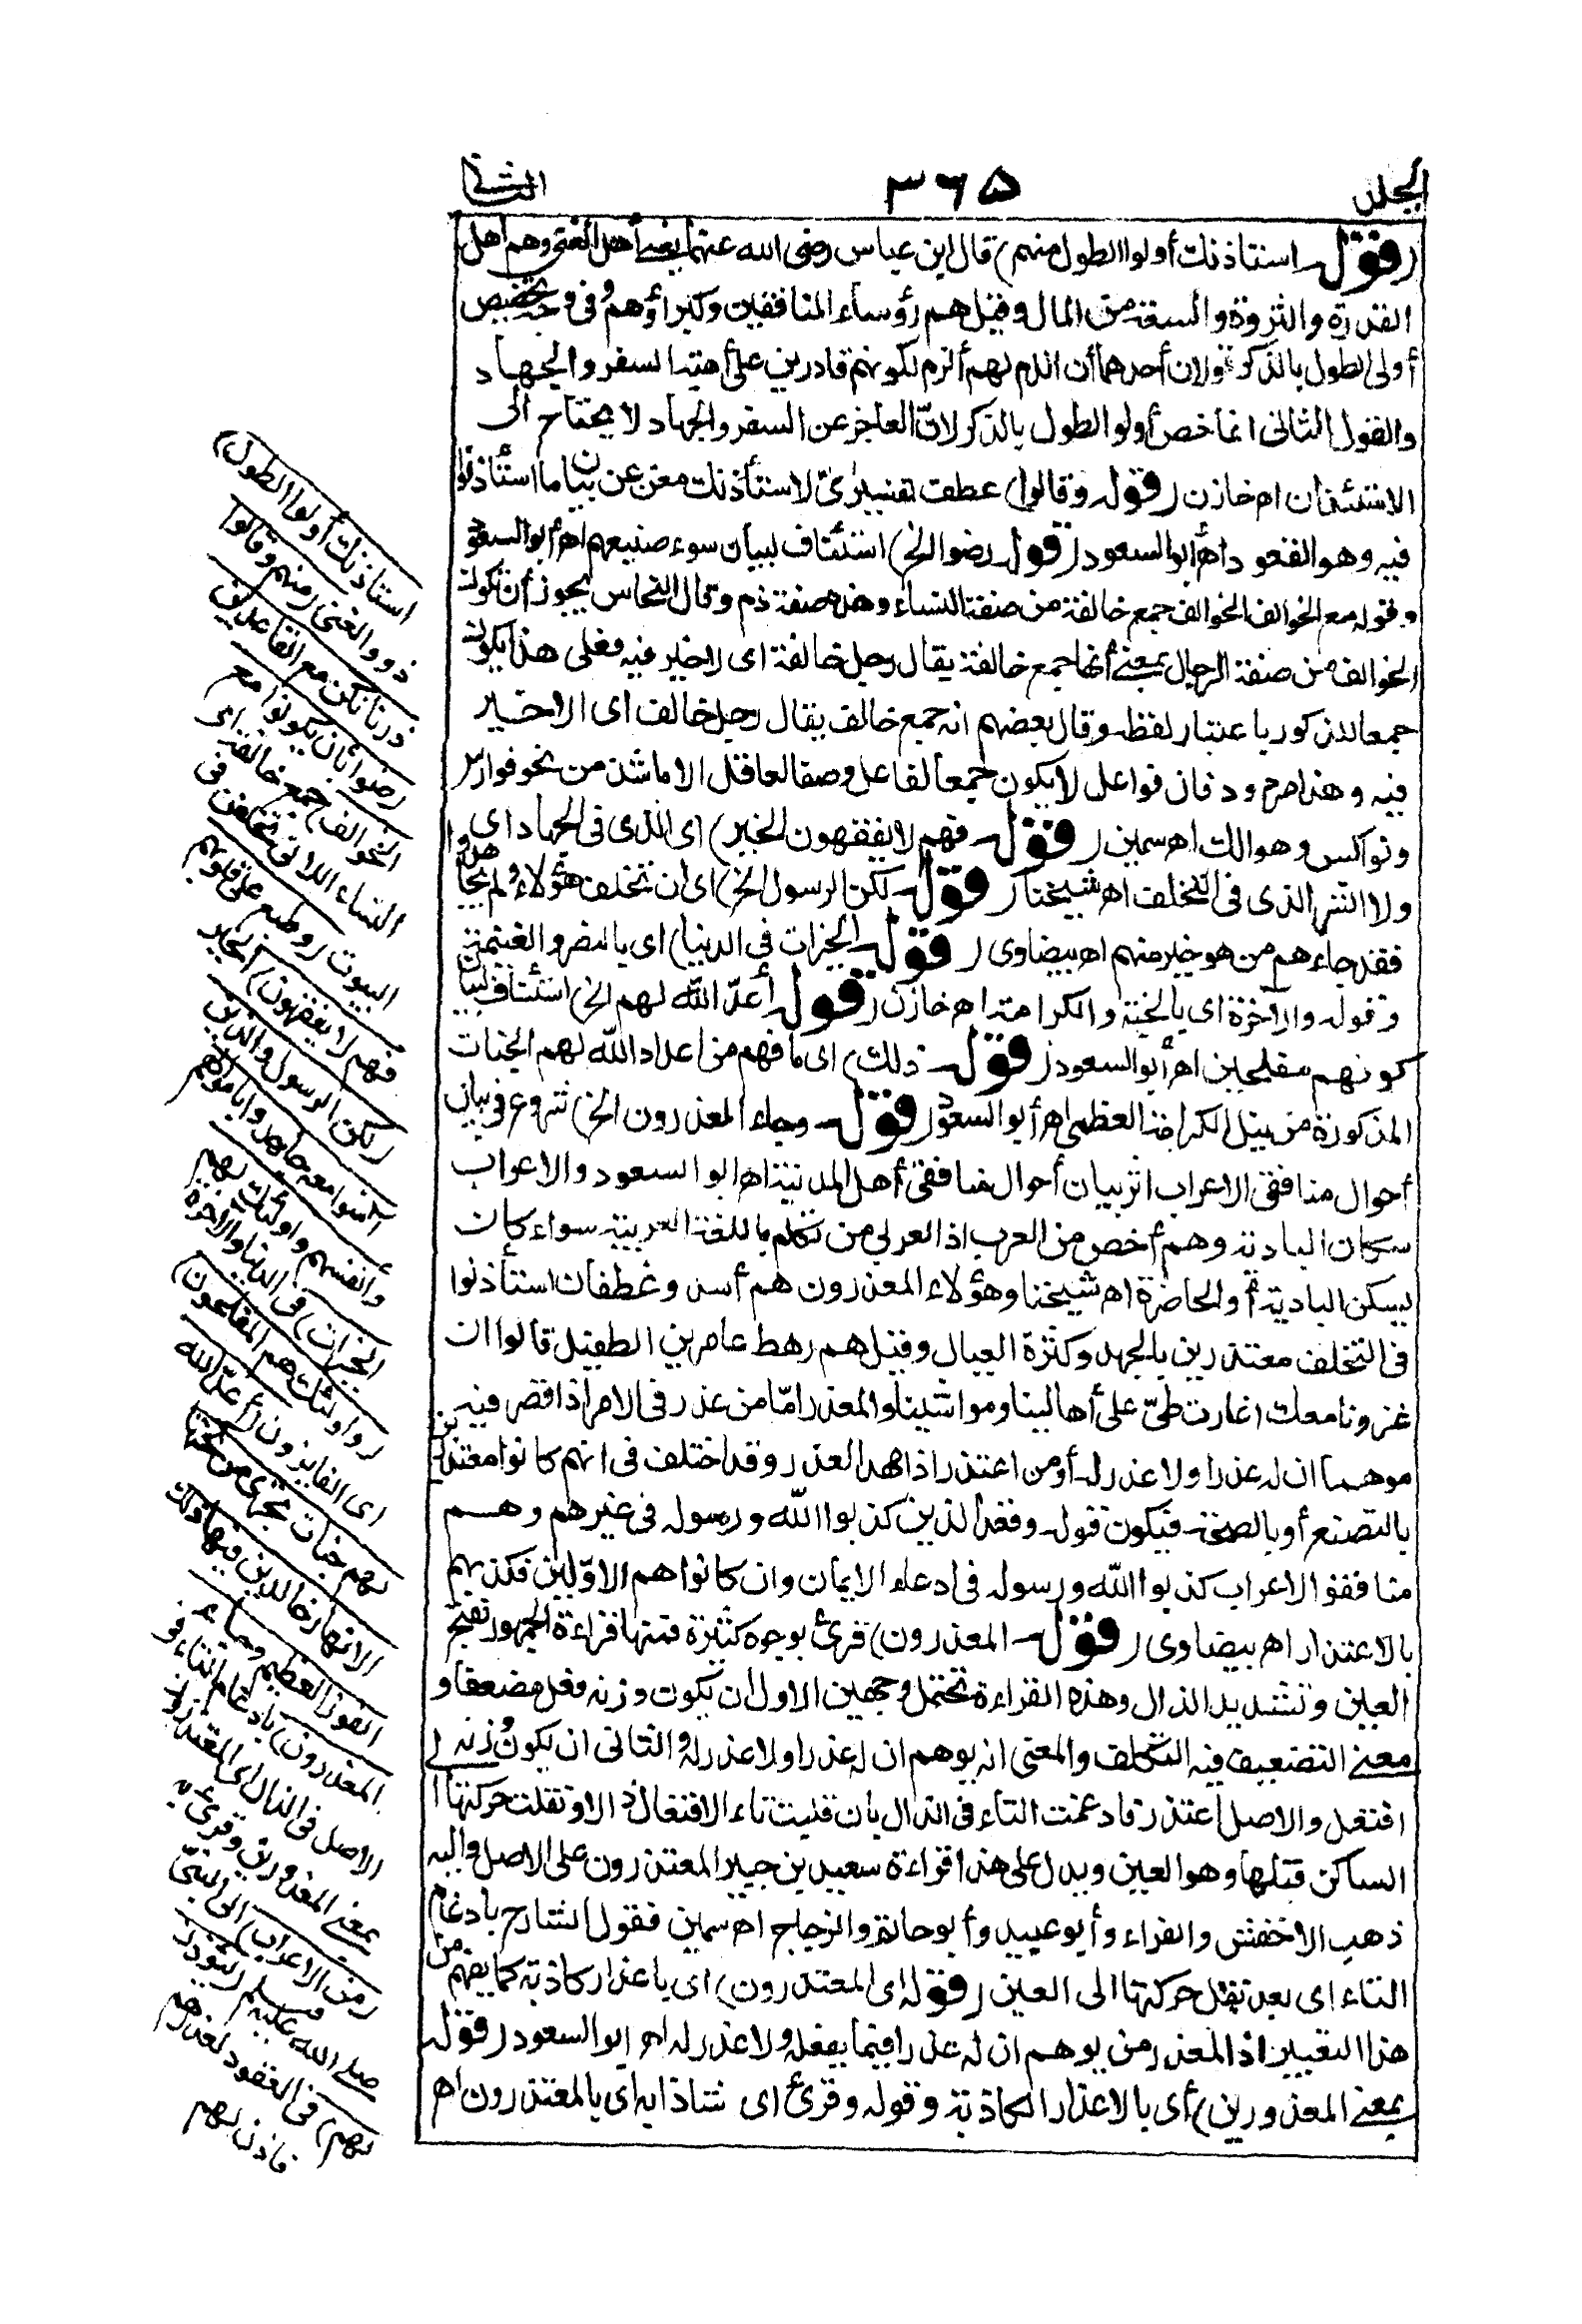 الجلد
٣٦٥
الثاني
(قوله استاذنك أولوا الطول منهم) قال ابن عباس رضى الله عنهما يعنى أهل الغنى وهم أهل
القدرة والثروة والسعة من المال وقيل هم رؤساء المنافقين وكبراؤهم وفى وجه تخصيص
أولى الطول بالذكر قولان أحدهما أن الذم لهم ألزم لكونهم قادرين على أهبة السفر والجهاد
والقول الثانى انما خص أولو الطول بالذكر لانّ العاجز عن السفر والجهاد لا يحتاج الى
الاستئذان اه خازن (قوله وقالوا) عطف تفسيرىّ لاستأذنك مغن عن بيان ما استأذنوا
فيه وهو القعود اه أبو السعود (قوله رضوا الخ) استئناف لبيان سوء صنيعهم اه أبو السعود
وقوله مع الخوالف الخوالف جمع خالفة من صفة النساء وهذه صفة ذم وقال النحاس يجوز أن تكون
الخوالف من صفة الرجال بمعنى أنها جمع خالفة يقال رجل خالفة اى لا خير فيه فعلى هذا يكون
جمعا للذكور باعتبار لفظه وقال بعضهم انه جمع خالف يقال رجل خالف اى الاخير
فيه وهذا مردود فان فواعل لا يكون جمعا لفاعل وصفا لعاقل الا ما شذ من نحو فوارس
ونواكس وهوالك اه سمين (قوله فهم لا يفقهون الخير) اى الذى فى الجهاد اى
ولا الشر الذى فى التخلف اه شيخنا (قوله لكن الرسول الخ) اى ان تخلف هؤلاء ولم يجاهدوا
فقد جاءهم من هو خير منهم اه بيضاوى (قوله الخيرات فى الدنيا) اى بالنصر والغنيمة
وقوله والآخرة اى بالجنة والكرامة اه خازن (قوله أعدّ الله لهم الخ) استئناف لبيان
كونهم مفلحين اه أبو السعود (قوله ذلك) اى ما فهم من اعداد الله لهم الجنات
المذكورة من نيل الكرامة العظمى اه أبو السعود (قوله وجاء المعذرون الخ) شروع فى بيان
أحوال منافقى الاعراب اثر بيان أحوال منافقى أهل المدينة اه ابو السعود والاعراب
سكان البادية وهم أخص من العرب اذ العربى من تكلم باللغة العربية سواء كان
يسكن البادية أو الحاضرة اه شيخنا وهؤلاء المعذرون هم أسد وغطفان استأذنوا
فى التخلف معتذرين بالجهد وكثرة العيال وقيل هم رهط عامر بن الطفيل قالوا ان
غزونا معك اغارت طىّ على أهالينا ومواشينا والمعذر امّا من عذر فى الامر اذا قصر فيه
موهما ان له عذرا ولا عذر له أو من اعتذر اذا مهد العذر وقد اختلف فى انهم كانوا معتذرين
بالتصنع أو بالصحة فيكون قوله وقعد الذين كذبوا الله ورسوله فى غيرهم وهم
منافقوا الاعراب كذبوا الله ورسوله فى ادعاء الايمان وان كانوا هم الاوّلين فكذبهم
بالاعتذار اه بيضاوى (قوله المعذرون) قرئ بوجوه كثيرة فمنها قراءة الجمهور بفتح
العين وتشديد الذال وهذه القراءة تحتمل وجهين الاول ان يكون وزنه فعل مضعفا و
معنى التضعيف فيه التكلف والمعنى انه يوهم ان له عذرا ولا عذر له والثانى ان يكون وزنه
افتعل والاصل اعتذر فادغمت التاء فى الذال بان قلبت تاء الافتعال ذالا ونقلت حركتها الى
الساكن قبلها وهو العين ويدل على هذا قراءة سعيد بن جبير المعتذرون على الاصل واليه
ذهب الاخفش والفراء وأبو عبيد وأبو حاتم والزجاج اه سمين فقول الشارح بادغام
التاء اى بعد نقل حركتها الى العين (قوله اى المعتذرون) اى باعذار كاذبة كما يفهم من
هذا التعبير اذ المعذر من يوهم ان له عذرا فيما يفعله ولا عذر له اه ابو السعود (قوله
بمعنى المعذورين) أى بالاعذار الكاذبة وقوله وقرئ اى شاذا به اى بالمعتذرون اه
استاذنك أولوا الطول)
ذوو الغنى (منهم وقالوا
ذرنا نكن مع القاعدين
رضوا بأن يكونوا مع
الخوالف) جمع خالفة اى
النساء اللاتى تخلفن فى
البيوت (وطبع على قلوبهم
فهم لا يفقهون) الخير
(لكن الرسول والذين
آمنوا معه جاهدوا باموالهم
وأنفسهم واولئك لهم
الخيرات) فى الدنيا والآخرة
(واولئك هم المفلحون)
اى الفايزون (أعدّ الله
لهم جنات تجرى من تحتها
الانهار خالدين فيها ذلك
الفوز العظيم وجاء
المعذرون) بادغام التاء فى
الاصل فى الذال اى المعتذرون
بمعنى المعذورين وقرئ به
(من الاعراب) الى النبىّ
صلى الله عليه وسلم (ليؤذن
لهم) فى القعود لعذرهم
فاذن لهم